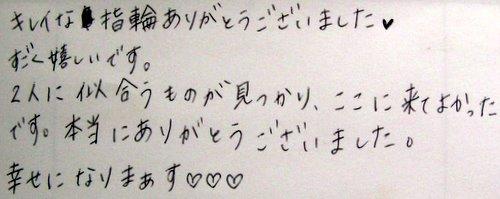 キレイな指輪ありがとうございました♥
すごく嬉しいです。
2人に似合うものが見つかり、ここに来てよかった
です。本当にありがとうございました。
幸せになりまぁす♡♡♡